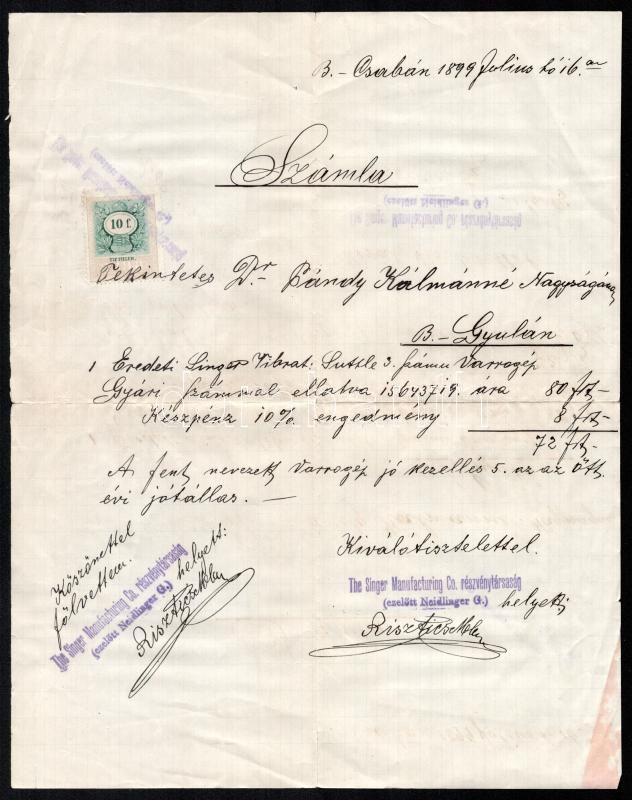 B.- Csabán 1899 Julius hó 16.án
Számla
10 f.
Tekintetes Dr. Bándy Kálmánné Nagyságána
B.- Gyulán
1 Eredeti Singer Vibrat. Suttle 3. számu Varrogép
Gyári számmal ellatva 15643719. ára 80 frt-
Készpénz 10% engedmény 8 frt-
72 frt-
A fent nevezett Varrogép jó kezellés 5. az az Ött
évi jótállas. —
Köszönettel
fölvettem.
The Singer Manufacturing Co. részvénytársaság
(ezelött Neidlinger G.)
helyett:
Kiválótisztelettel.
The Singer Manufacturing Co. részvénytársaság
(ezelött Neidlinger G.)
helyett